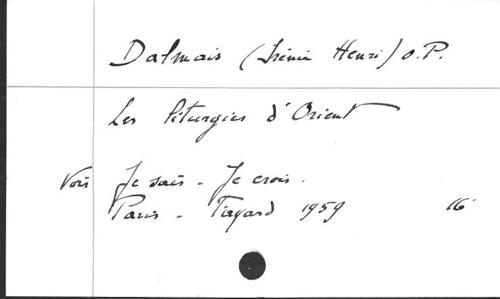 Dalmais (Irénée Henri) O.P.
Les liturgies d'Orient
Voir Je sais - Je crois.
Paris - Fayard 1959 16